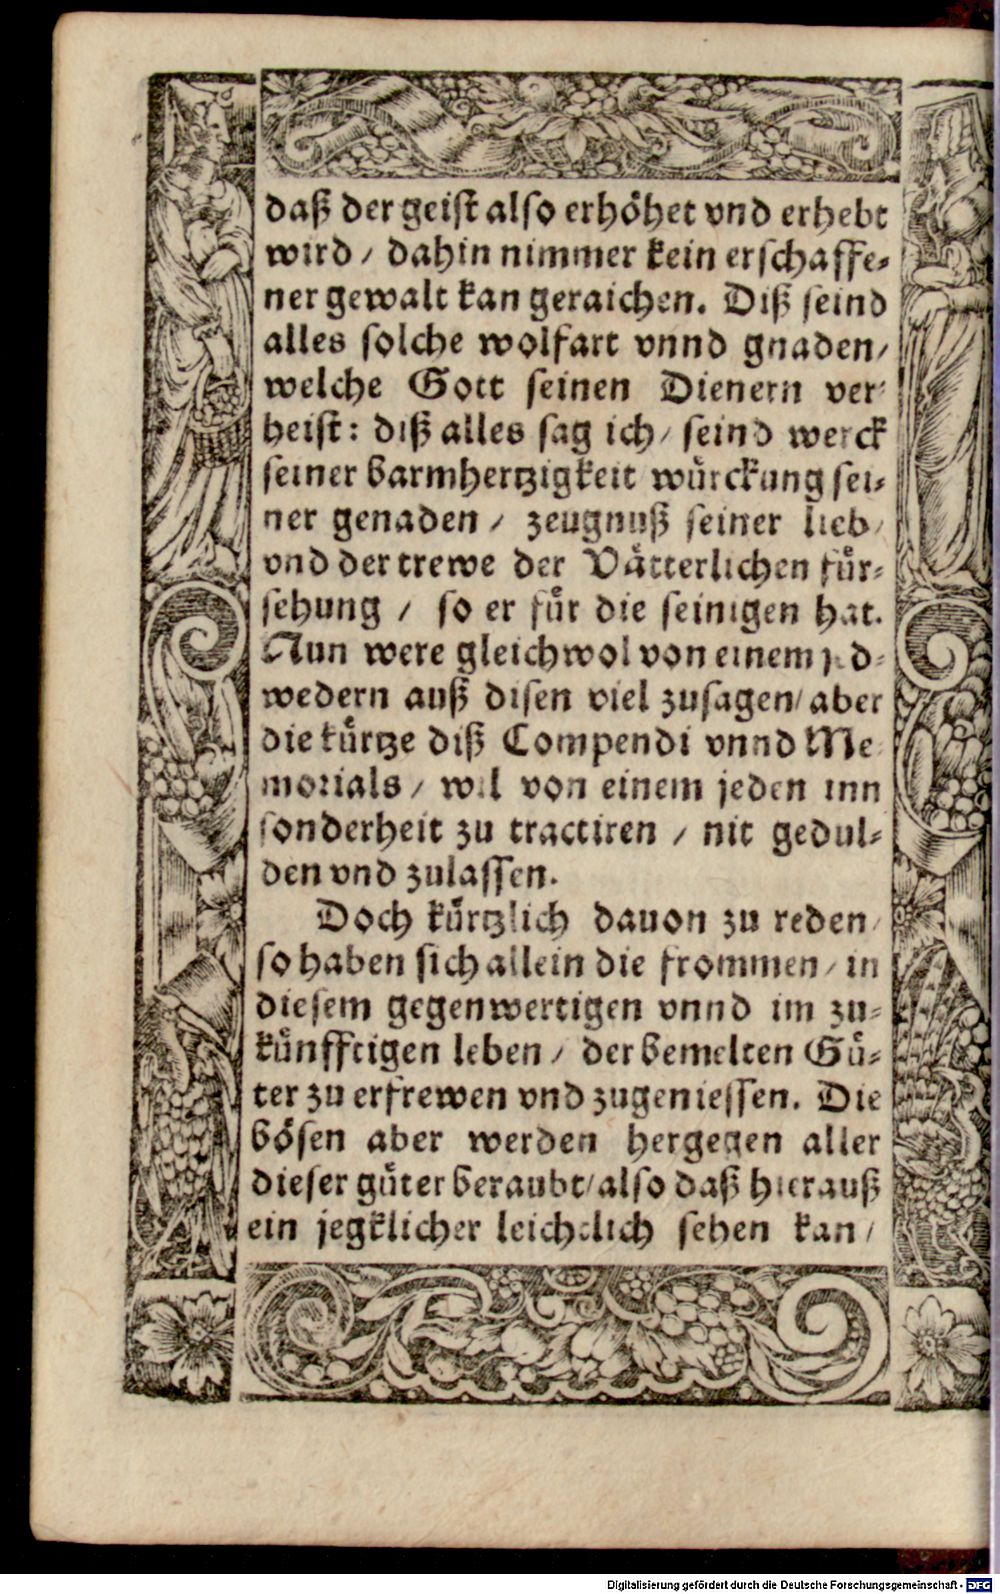 daß der geist also erhöhet vnd erhebt
wird / dahin nimmer kein erschaffe-
ner gewalt kan geraichen. Diß seind
alles solche wolfart vnnd gnaden /
welche Gott seinen Dienern ver-
heist: diß alles sag ich / seind werck
seiner barmhertzigkeit würckung sei-
ner genaden / zeugnuß seiner lieb /
vnd der trewe der Vätterlichen für-
sehung / so er für die seinigen hat.
Nun were gleichwol von einem jed-
wedern auß disen viel zusagen / aber
die kürtze diß Compendi vnnd Me-
morials / wil von einem jeden inn
sonderheit zu tractiren / nit gedul-
den vnd zulassen.
Doch kürtzlich dauon zu reden /
so haben sich allein die frommen / in
diesem gegenwertigen vnnd im zu-
künfftigen leben / der bemelten Gü-
ter zu erfrewen vnd zugeniessen. Die
bösen aber werden hergegen aller
dieser güter beraubt / also daß hierauß
ein jegklicher leichtlich sehen kan /
Digitalisierung gefördert durch die Deutsche Forschungsgemeinschaft - DFG